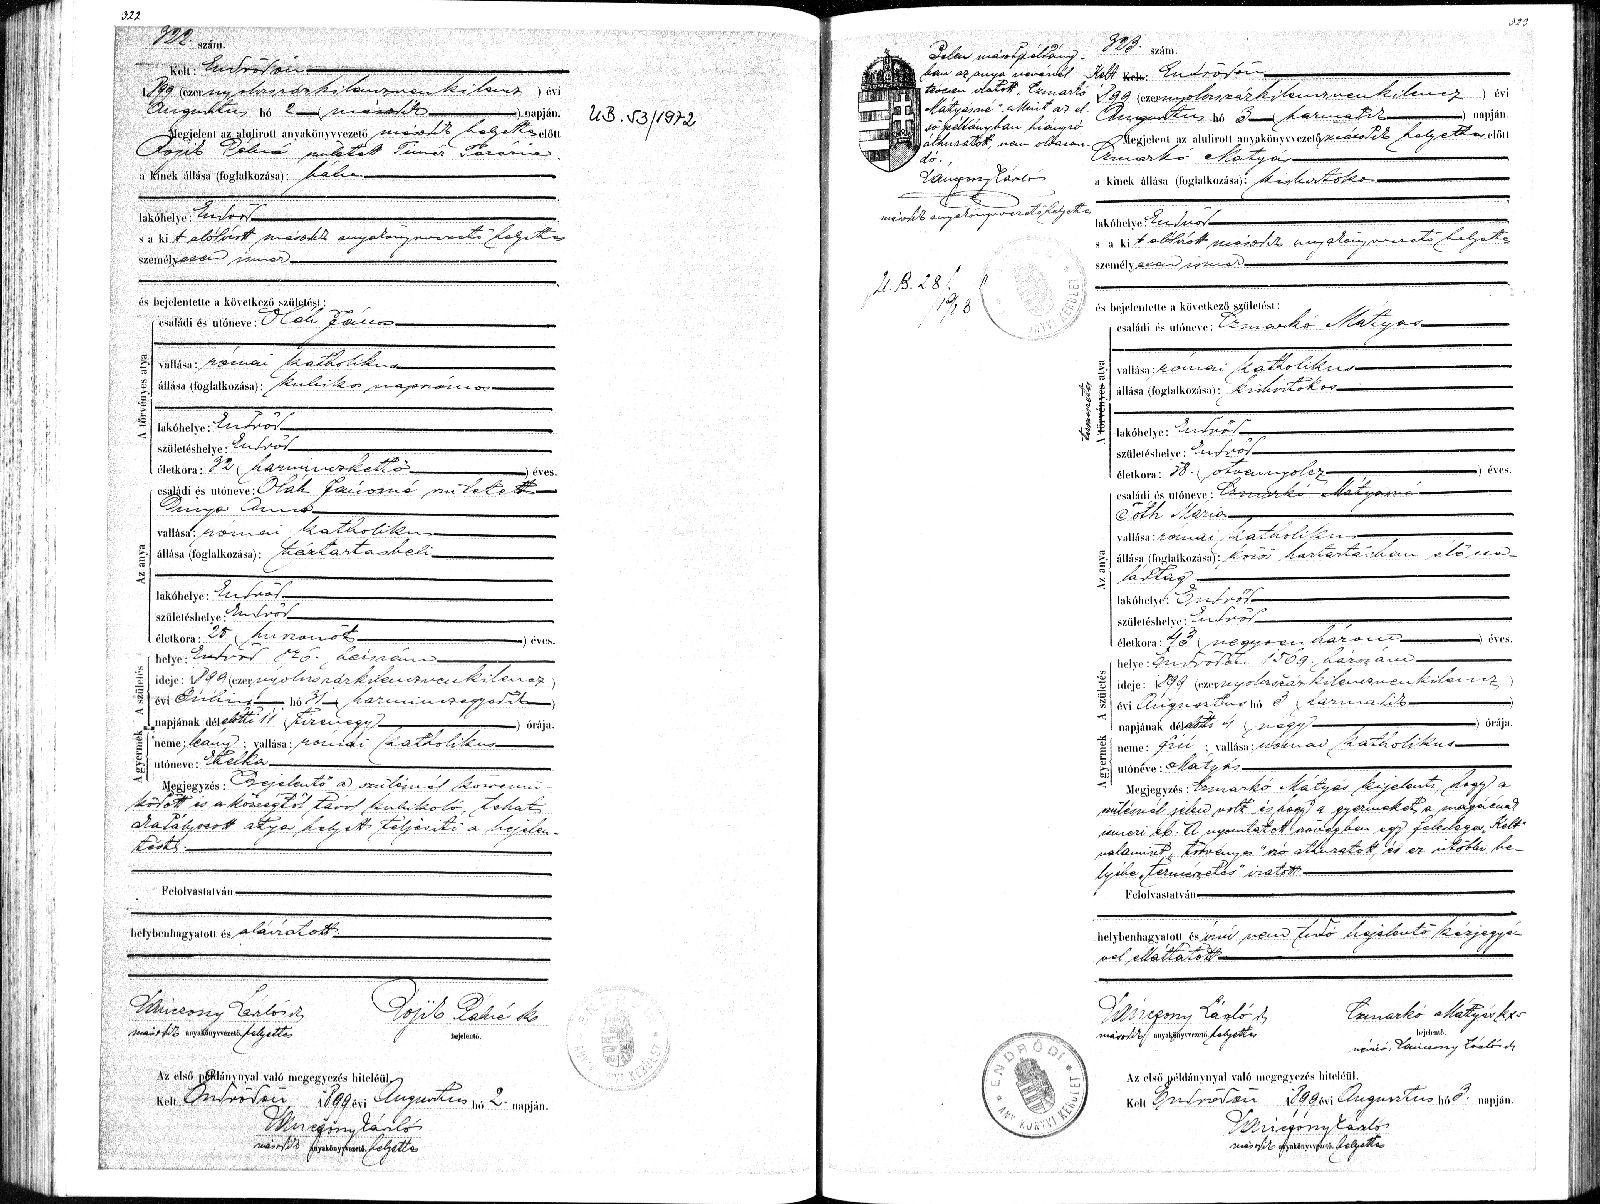 322
322 szám.
Kelt: Endrődön
1899 (ezernyolcszázkilenczvenkilencz) évi
Augusztus hó 2 (második) napján.
Megjelent az alulirott anyakönyvvezető második helyettes előtt
született Timár
a kinek állása (foglalkozása): bába
lakóhelye: Endrőd
s a kit alólirott második anyakönyvvezető helyettes
személyesen ismer
és bejelentette a következő születést:
A törvényes atya
családi és utóneve: Oláh János
vallása: római katholikus
állása (foglalkozása): kubikos napszámos
lakóhelye: Endrőd
születéshelye: Endrőd
életkora: 32 (harminczkettő) éves.
Az anya
családi és utóneve: Oláh Jánosné született
Dinya Anna
vallása: római katholikus
állása (foglalkozása): háztartásbeli
lakóhelye: Endrőd
születéshelye: Endrőd
életkora: 25 (huszonöt) éves.
A születés
helye: Endrőd házszám
ideje: 1899 (ezernyolcszázkilenczvenkilencz)
évi Július hó 31 (harminczegyedik)
napjának délelőtti 11 (tizenegy) órája.
A gyermek
neme: leány; vallása: római katholikus
utóneve: Etelka
Megjegyzés: Bejelentő a szülésnél közremű-
ködött és a községtől távol kubikoló, tehát
akadályozott atya helyett teljesíti a bejelen-
tést.
Felolvastatván
helybenhagyatott és aláiratott.
Lánczony László sk
második anyakönyvvezető. helyettes
bejelentő.
Az első példánynyal való megegyezés hiteléül.
Kelt Endrődön 1899 évi Augusztus hó 2. napján.
Lánczony László
második anyakönyvvezető. helyettes
U.B. 53/1972
323
323. szám.
Jelen másodpéldány-
ban az anya nevénél
tévesen iratott "Czmarkó
Mátyásné" mint az el-
ső példányban hiányzó
áthúzatott, nem olvasan-
dó.
Lánczony László
második anyakönyvvezető helyettes
U.B. 28
ENDRŐDI ANYAKÖNYVI KERÜLET
Kelt Kelt: Endrődön
1899 (ezernyolcszázkilenczvenkilencz) évi
Augusztus hó 3 (harmadik) napján.
Megjelent az alulirott anyakönyvvezető második helyettes előtt
Czmarkó Mátyás
a kinek állása (foglalkozása): kisbirtokos
lakóhelye: Endrőd
s a kit alólirott második anyakönyvvezető helyettes
személyesen ismer
és bejelentette a következő születést:
A törvényes természetes atya
családi és utóneve: Czmarkó Mátyás
vallása: római katholikus
állása (foglalkozása): kisbirtokos
lakóhelye: Endrőd
születéshelye: Endrőd
életkora: 58. (ötvennyolcz) éves.
Az anya
családi és utóneve: Czmarkó Mátyásné
Tóth Mária
vallása: római katholikus
állása (foglalkozása): közös háztartásban élő csa-
ládtag
lakóhelye: Endrőd
születéshelye: Endrőd
életkora: 43 (negyvenhárom) éves.
A születés
helye: Endrődön 1509. házszám
ideje: 1899 (ezernyolcszázkilenczvenkilencz)
évi Augusztus hó 3 (harmadik)
napjának délelőtti 4 (négy) órája.
A gyermek
neme: fiú; vallása: római katholikus
utóneve: Mátyás
Megjegyzés: Czmarkó Mátyás kijelenti, hogy a
szülésnél jelen volt és hogy a gyermeket a magáénak
ismeri el. A nyomtatott szövegben egy felesleges "Kelt"
valamint "törvényes" szó áthúzatott, és ez utóbbi he-
lyébe "természetes" iratott.
Felolvastatván
helybenhagyatott és írni nem tudó bejelentő kézjegyé-
vel elláttatott
Lánczony László sk
második anyakönyvvezető. helyettes
Czmarkó Mátyás
bejelentő.
Lánczony László sk
ENDRŐDI ANYAKÖNYVI KERÜLET
Az első példánynyal való megegyezés hiteléül.
Kelt Endrődön 1899 évi Augusztus hó 3. napján.
Lánczony László
második anyakönyvvezető. helyettes